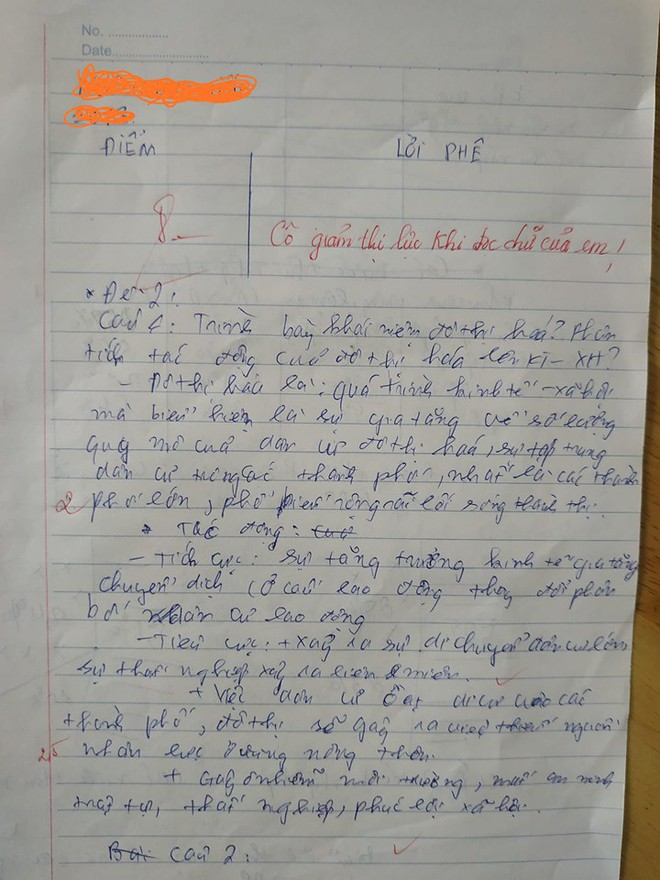 No. ..................
Date..........................
ĐIỂM
LỜI PHÊ
8.-
Cô giảm thị lực khi đọc chữ của em!
* Đề 2:
Câu 1: Trình bày khái niệm đô thị hoá? Phân
tích tác động của đô thị hóa lên KT - XH?
- Đô thị hoá là: quá trình kinh tế - xã hội
mà biểu hiện là sự gia tăng về số lượng
quy mô của dân cư đô thị hoá, sự tập trung
dân cư trong các thành phố, nhất là các thành
2 phố lớn, phổ biến rộng rãi lối sống thành thị.
* Tác động:
- Tích cực: sự tăng trưởng kinh tế gia tăng
chuyển dịch cơ cấu lao động thay đổi phân
bố dân cư lao động
- Tiêu cực: + xảy ra sự di chuyển dân cư lớn
sự thất nghiệp xảy ra
+ Việc dân cư ồ ạt di cư vào các
thành phố, đô thị sẽ gây ra việc thiếu nguồn
2,5 nhân lực ở vùng nông thôn.
+ Gây ô nhiễm môi trường, mất an ninh
trật tự, thất nghiệp, phúc lợi xã hội.
Bài Câu 2: